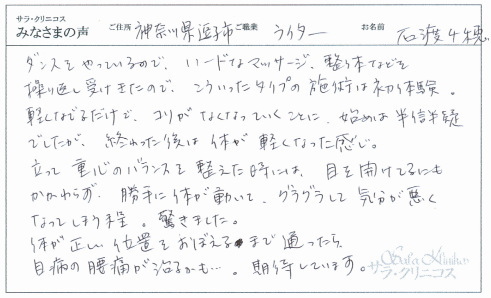 サラ・クリニコス
みなさまの声 ご住所 神奈川県逗子市 ご職業 ライター お名前 石渡千穂
ダンスをやっているので、ハードなマッサージ、整体などを
繰り返し受けてきたので、こういったタイプの施術は初体験。
軽くなでるだけで、コリがなくなっていくことに、始めは半信半疑
でしたが、終わった後は体が軽くなった感じ。
立って重心のバランスを整えた時には、目を開けてるにも
かかわらず、勝手に体が動いて、グラグラして気分が悪く
なってしまう程。驚きました。
体が正しい位置をおぼえるまで通ったら、
自病の腰痛が治るかも…。期待しています。
サラ・クリニコス